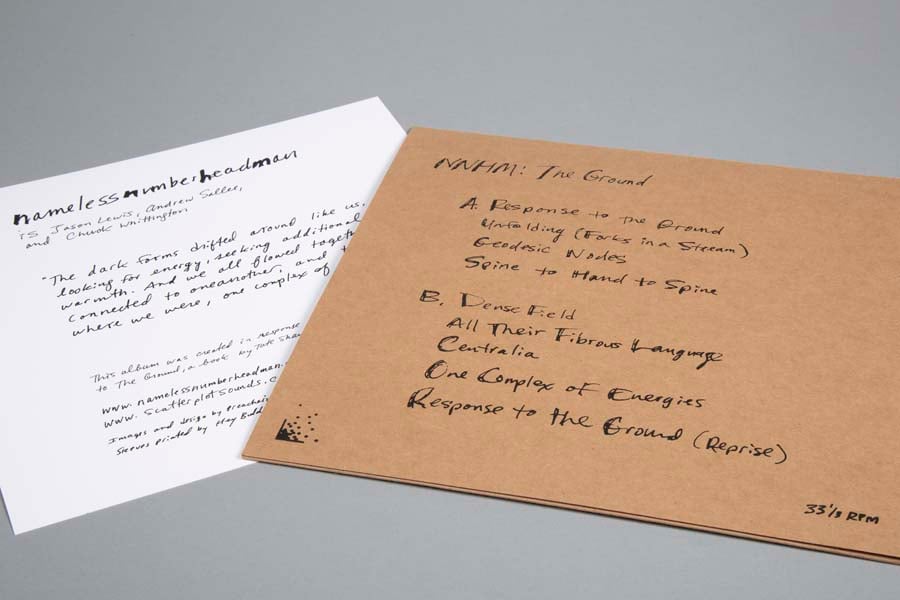 namelessnumberheadman
is Jason Lewis, Andrew Sallee,
and Chuck Whittington
"The dark forms drifted around like us,
looking for energy, seeking additional
warmth. And we all flowed
connected to oneanother, and
where we were, one complex of
This album was created in response
to The Ground, a book by Tate
www.namelessnumberheadman.
www.scatterplotsounds.c
Images and design by
Sleeves printed by
NNHM: The Ground
A. Response to the Ground
Unfolding (Forks in a Stream)
Geodesic Nodes
Spine to Hand to Spine
B. Dense Field
All Their Fibrous Language
Centralia
One Complex of Energies
Response to the Ground (Reprise)
33 1/3 RPM